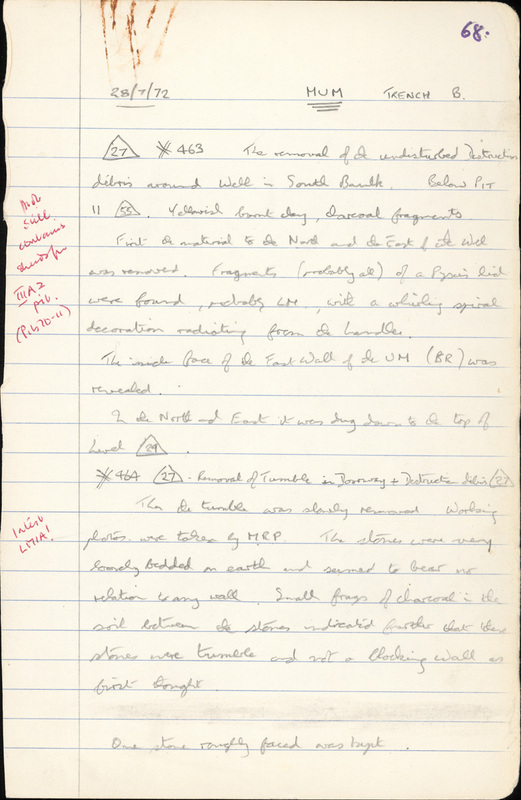 68.
28/7/72 MUM TRENCH B.
27 463 The removal of the undisturbed Destruction
debris around Wall in South Baulk. Below PIT
11 55. Yellowish burnt clay, charcoal fragments
First the material to the North and the East of the Wall
was removed. Fragments (probably all) of a Pyxis lid
were found, probably LM, with a whirling spiral
decoration radiating from the handle.
The inside face of the East Wall of the UM (BR) was
revealed.
In the North and East it was dug down to the top of
Level 29.
464 27 - Removal of Tumble in Doorway + Destruction debris 27
Then the tumble was slowly removed Working
photos were taken by MRP. The stones were very
loosely bedded on earth and seemed to bear no
relation to any wall. Small frags of charcoal in the
soil between the stones indicated further that these
stones were tumble and not a blocking wall as
first thought.
One stone roughly faced was kept.
still
contains
IIIA2
pit.
(Pits 10-11)
LMIA!